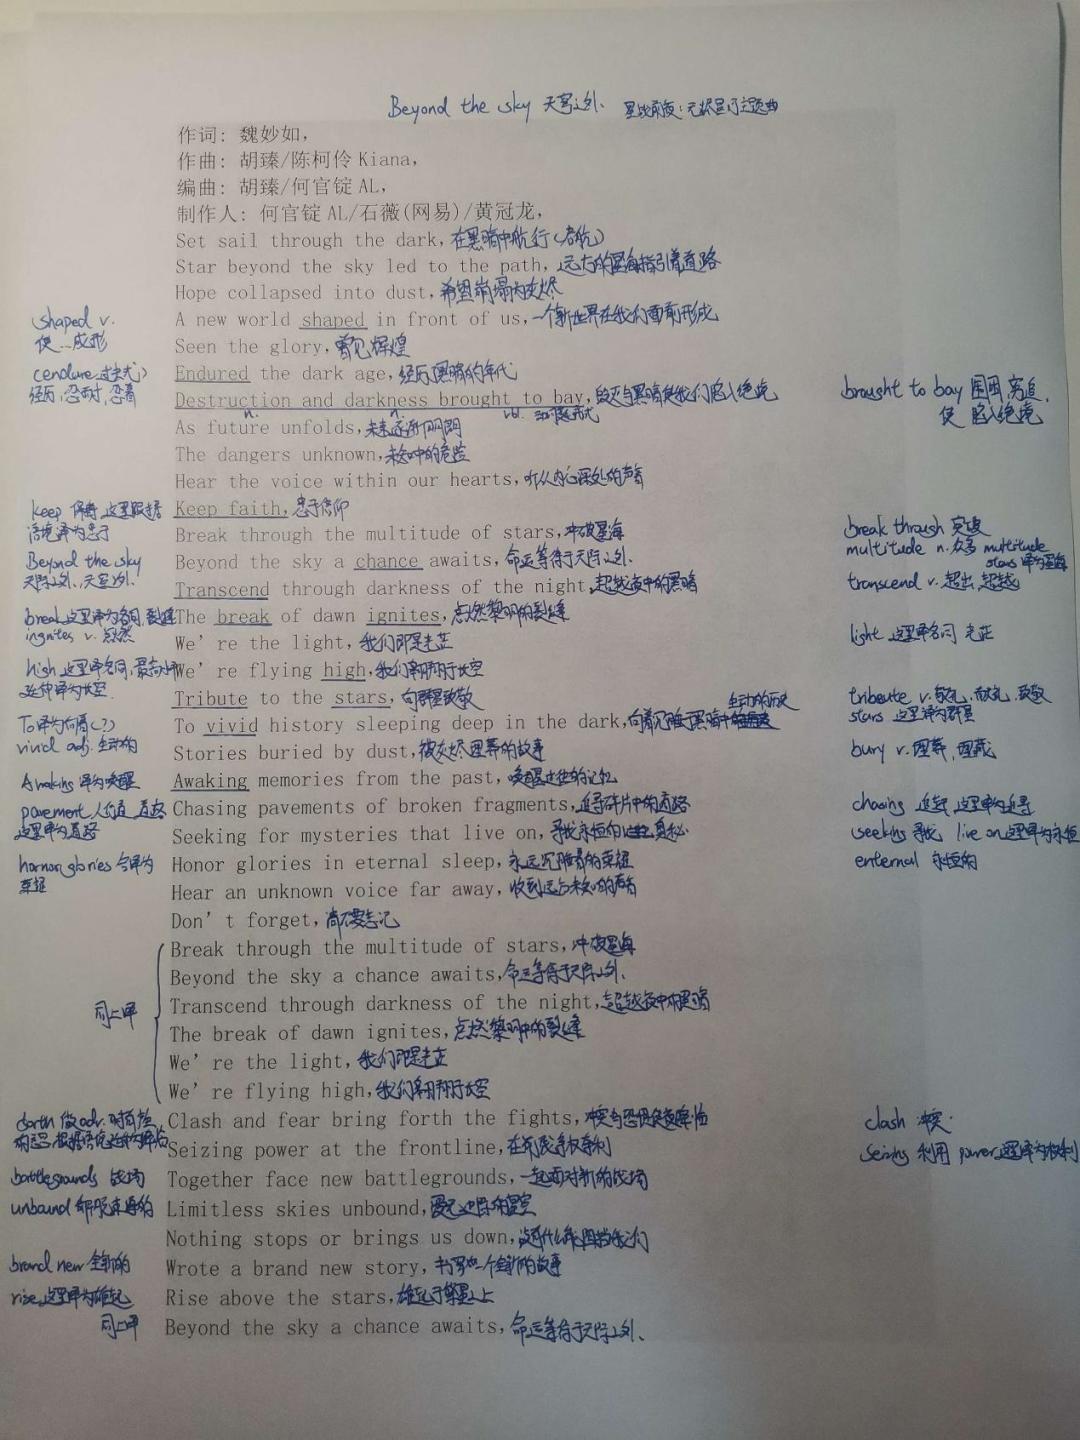 Beyond the sky 天穹之外、 星战前夜：无烬星河主题曲
作词: 魏妙如,
作曲: 胡臻/陈柯伶 Kiana,
编曲: 胡臻/何官锭 AL,
制作人: 何官锭 AL/石薇(网易)/黄冠龙,
Set sail through the dark, 在黑暗中航行(启航)
Star beyond the sky led to the path, 远方的星海指引着道路
Hope collapsed into dust, 希望崩塌为灰烬
shaped v. A new world shaped in front of us, 一个新世界在我们面前形成
使...成形 Seen the glory, 曾见辉煌
(endure 过去式) Endured the dark age, 经历黑暗的年代
经历,忍耐,忍着 Destruction and darkness brought to bay, 毁灭与黑暗使我们陷入绝境 brought to bay 围困,穷追,
使 陷入绝境
n. n. vb.
As future unfolds, 未来逐渐
The dangers unknown, 未知中的危险
Hear the voice within our hearts, 听从内心深处的声音
keep 保持,这里跟据 Keep faith, 忠于信仰
语境译为忠于 Break through the multitude of stars, 冲破星海 break through 突破
multitude n.众多 multitude
Beyond the sky Beyond the sky a chance awaits, 命运等待于天际之外、 stars 译为星海
天际之外、天穹之外、 Transcend through darkness of the night, 超越夜中的黑暗 transcend v. 超出,超越
break 这里译为名词,裂缝 The break of dawn ignites, 点燃黎明的裂缝
ingnites v. 点燃 We're the light, 我们即是光芒 light 这里译名词 光芒
high 这里译名词,最高水平 We're flying high, 我们翱翔于长空
延伸译为长空 Tribute to the stars, 向群星致敬 tribeute v. 敬礼,献礼,致敬
生动的历史 stars 这里译为群星
To译为向着(?) To vivid history sleeping deep in the dark, 向着沉睡于黑暗中
vivid adj. 生动的 Stories buried by dust, 被灰烬埋葬的故事 bury v. 埋葬,埋藏
Awaking 译为唤醒 Awaking memories from the past, 唤醒过往的记忆
pavement 人行道,道路 Chasing pavements of broken fragments, 追寻碎片中的道路 chasing 追逐,这里译为追寻
这里译为道路 Seeking for mysteries that live on, 寻找永恒的奥秘 seeking 寻找 live on 这里译为永恒
honnor glories 合译为 Honor glories in eternal sleep, 永远沉睡着的荣耀 enternal 永恒的
荣耀 Hear an unknown voice far away, 收到远方未知的声音
Don't forget, 尚不要忘记
Break through the multitude of stars, 冲破星海
Beyond the sky a chance awaits, 命运等待于天际之外、
同上译 Transcend through darkness of the night, 超越夜中的黑暗
The break of dawn ignites, 点燃黎明中的裂缝
We're the light, 我们即是光芒
We're flying high, 我们翱翔于长空
forth 做adv. Clash and fear bring forth the fights, 冲突与恐惧使战争降临 clash 冲突.
Seizing power at the frontline, 在前线 seizing 利用 power 这里译为权利
battlegrounds 战场 Together face new battlegrounds, 一起面对新的战场
unbound 解脱束缚的 Limitless skies unbound,
Nothing stops or brings us down, 没有什么能阻挡我们
brand new 全新的 Wrote a brand new story, 书写出一个全新的故事
rise 这里译为雄起 Rise above the stars, 雄起于繁星之上
同上译 Beyond the sky a chance awaits, 命运等待于天际之外、